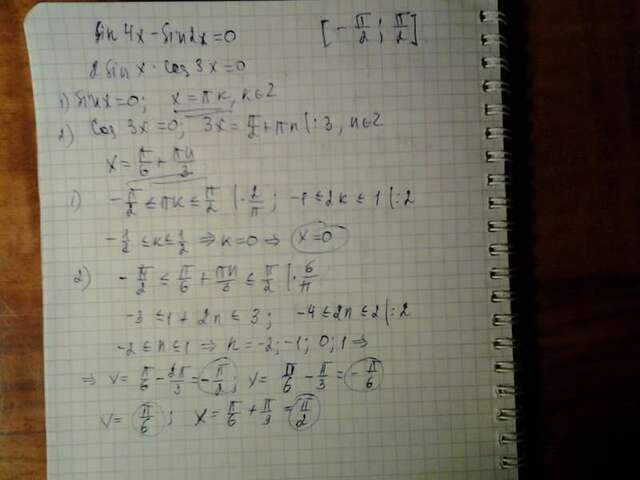 sin 4x - sin 2x = 0 [-π/2; π/2]
2 sin x · cos 3x = 0
1) sin x = 0; x = πk, k∈Z
2) cos 3x = 0; 3x = π/2 + πn |:3, n∈Z
x = π/6 + πn/3
1) -π/2 ≤ πk ≤ π/2 |·2/π; -1 ≤ 2k ≤ 1 |:2
-1/2 ≤ k ≤ 1/2 ⇒ k=0 ⇒ x=0
2) -π/2 ≤ π/6 + πn/3 ≤ π/2 |·6/π
-3 ≤ 1 + 2n ≤ 3; -4 ≤ 2n ≤ 2 |:2
-2 ≤ n ≤ 1 ⇒ n = -2; -1; 0; 1 ⇒
⇒ x = π/6 - 2π/3 = -π/2; x = π/6 - π/3 = -π/6
x = π/6; x = π/6 + π/3 = π/2